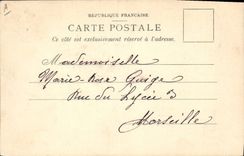 RÉPUBLIQUE FRANÇAISE
CARTE POSTALE
Ce côté est exclusivement réservé à l'adresse.
Mademoiselle
Marie-Rose Guige
Rue du Lycée 3
Marseille